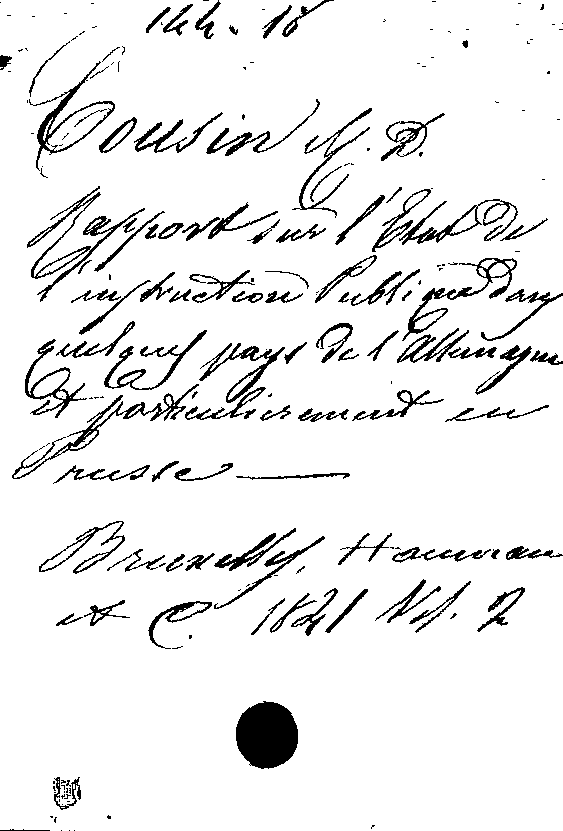 144. 18
Cousin M. D.
Rapport sur l'Etat de
l'instruction Publique dans
quelques pays de l'Allemagne
et particulierement en
Prusse —
Bruxelles, Hauman
et C. 1841 Vol. 2